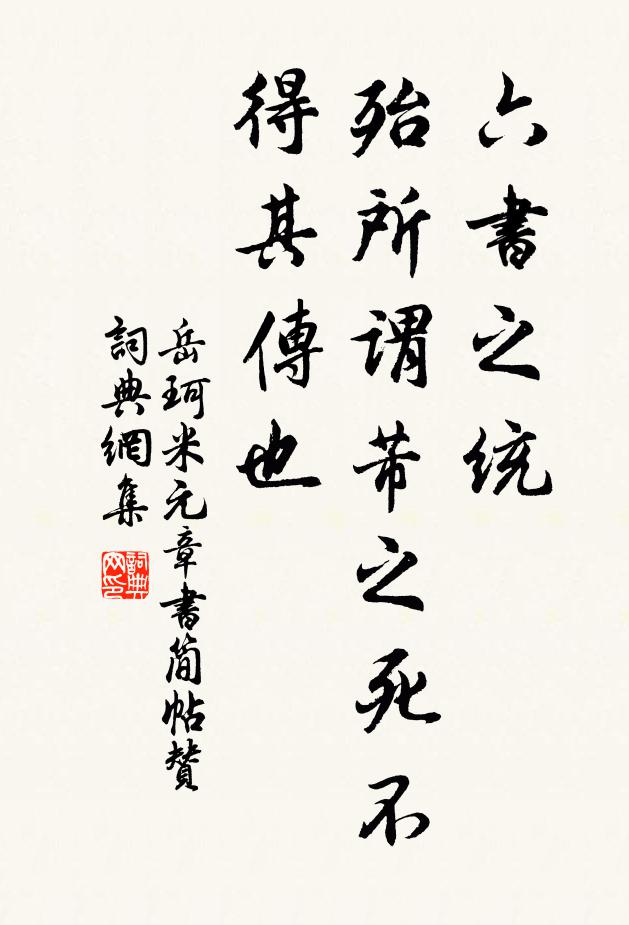 六書之統
殆所謂芾之死不
得其傳也
岳珂米元章書簡帖贊
詞典網集
詞典
网印